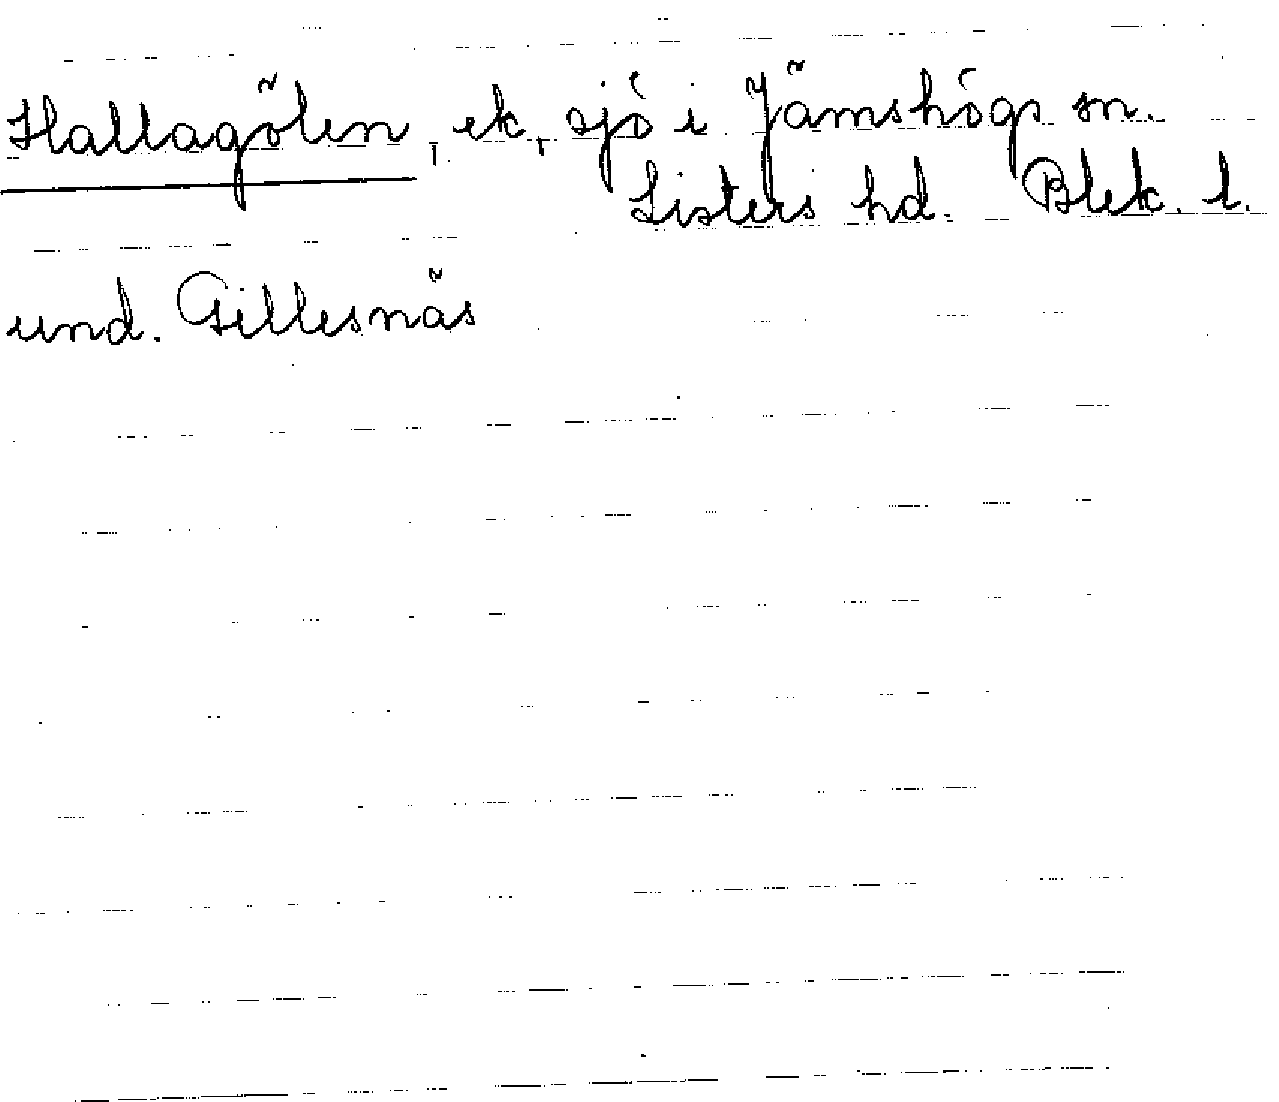 Hallagölen, ek, sjö i Jämshögs sn.
Listers hd. Blek. l.
und. Gillesnäs